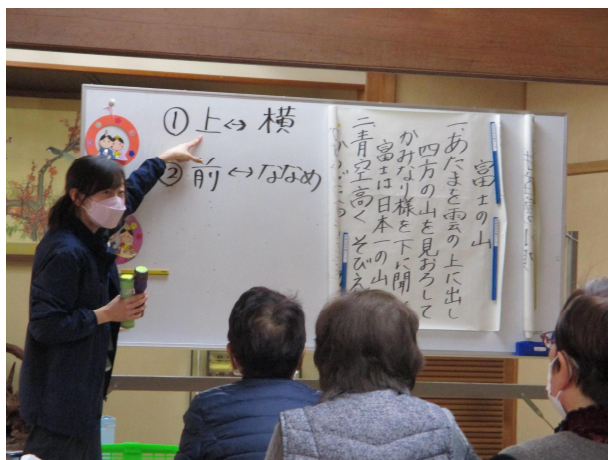 ① 上↔横
② 前↔ななめ
富士の山
一、あたまを雲の上に出し
四方の山を見おろして
かみなり様を下に聞
富士は日本一の山
二、青空高く そびえ